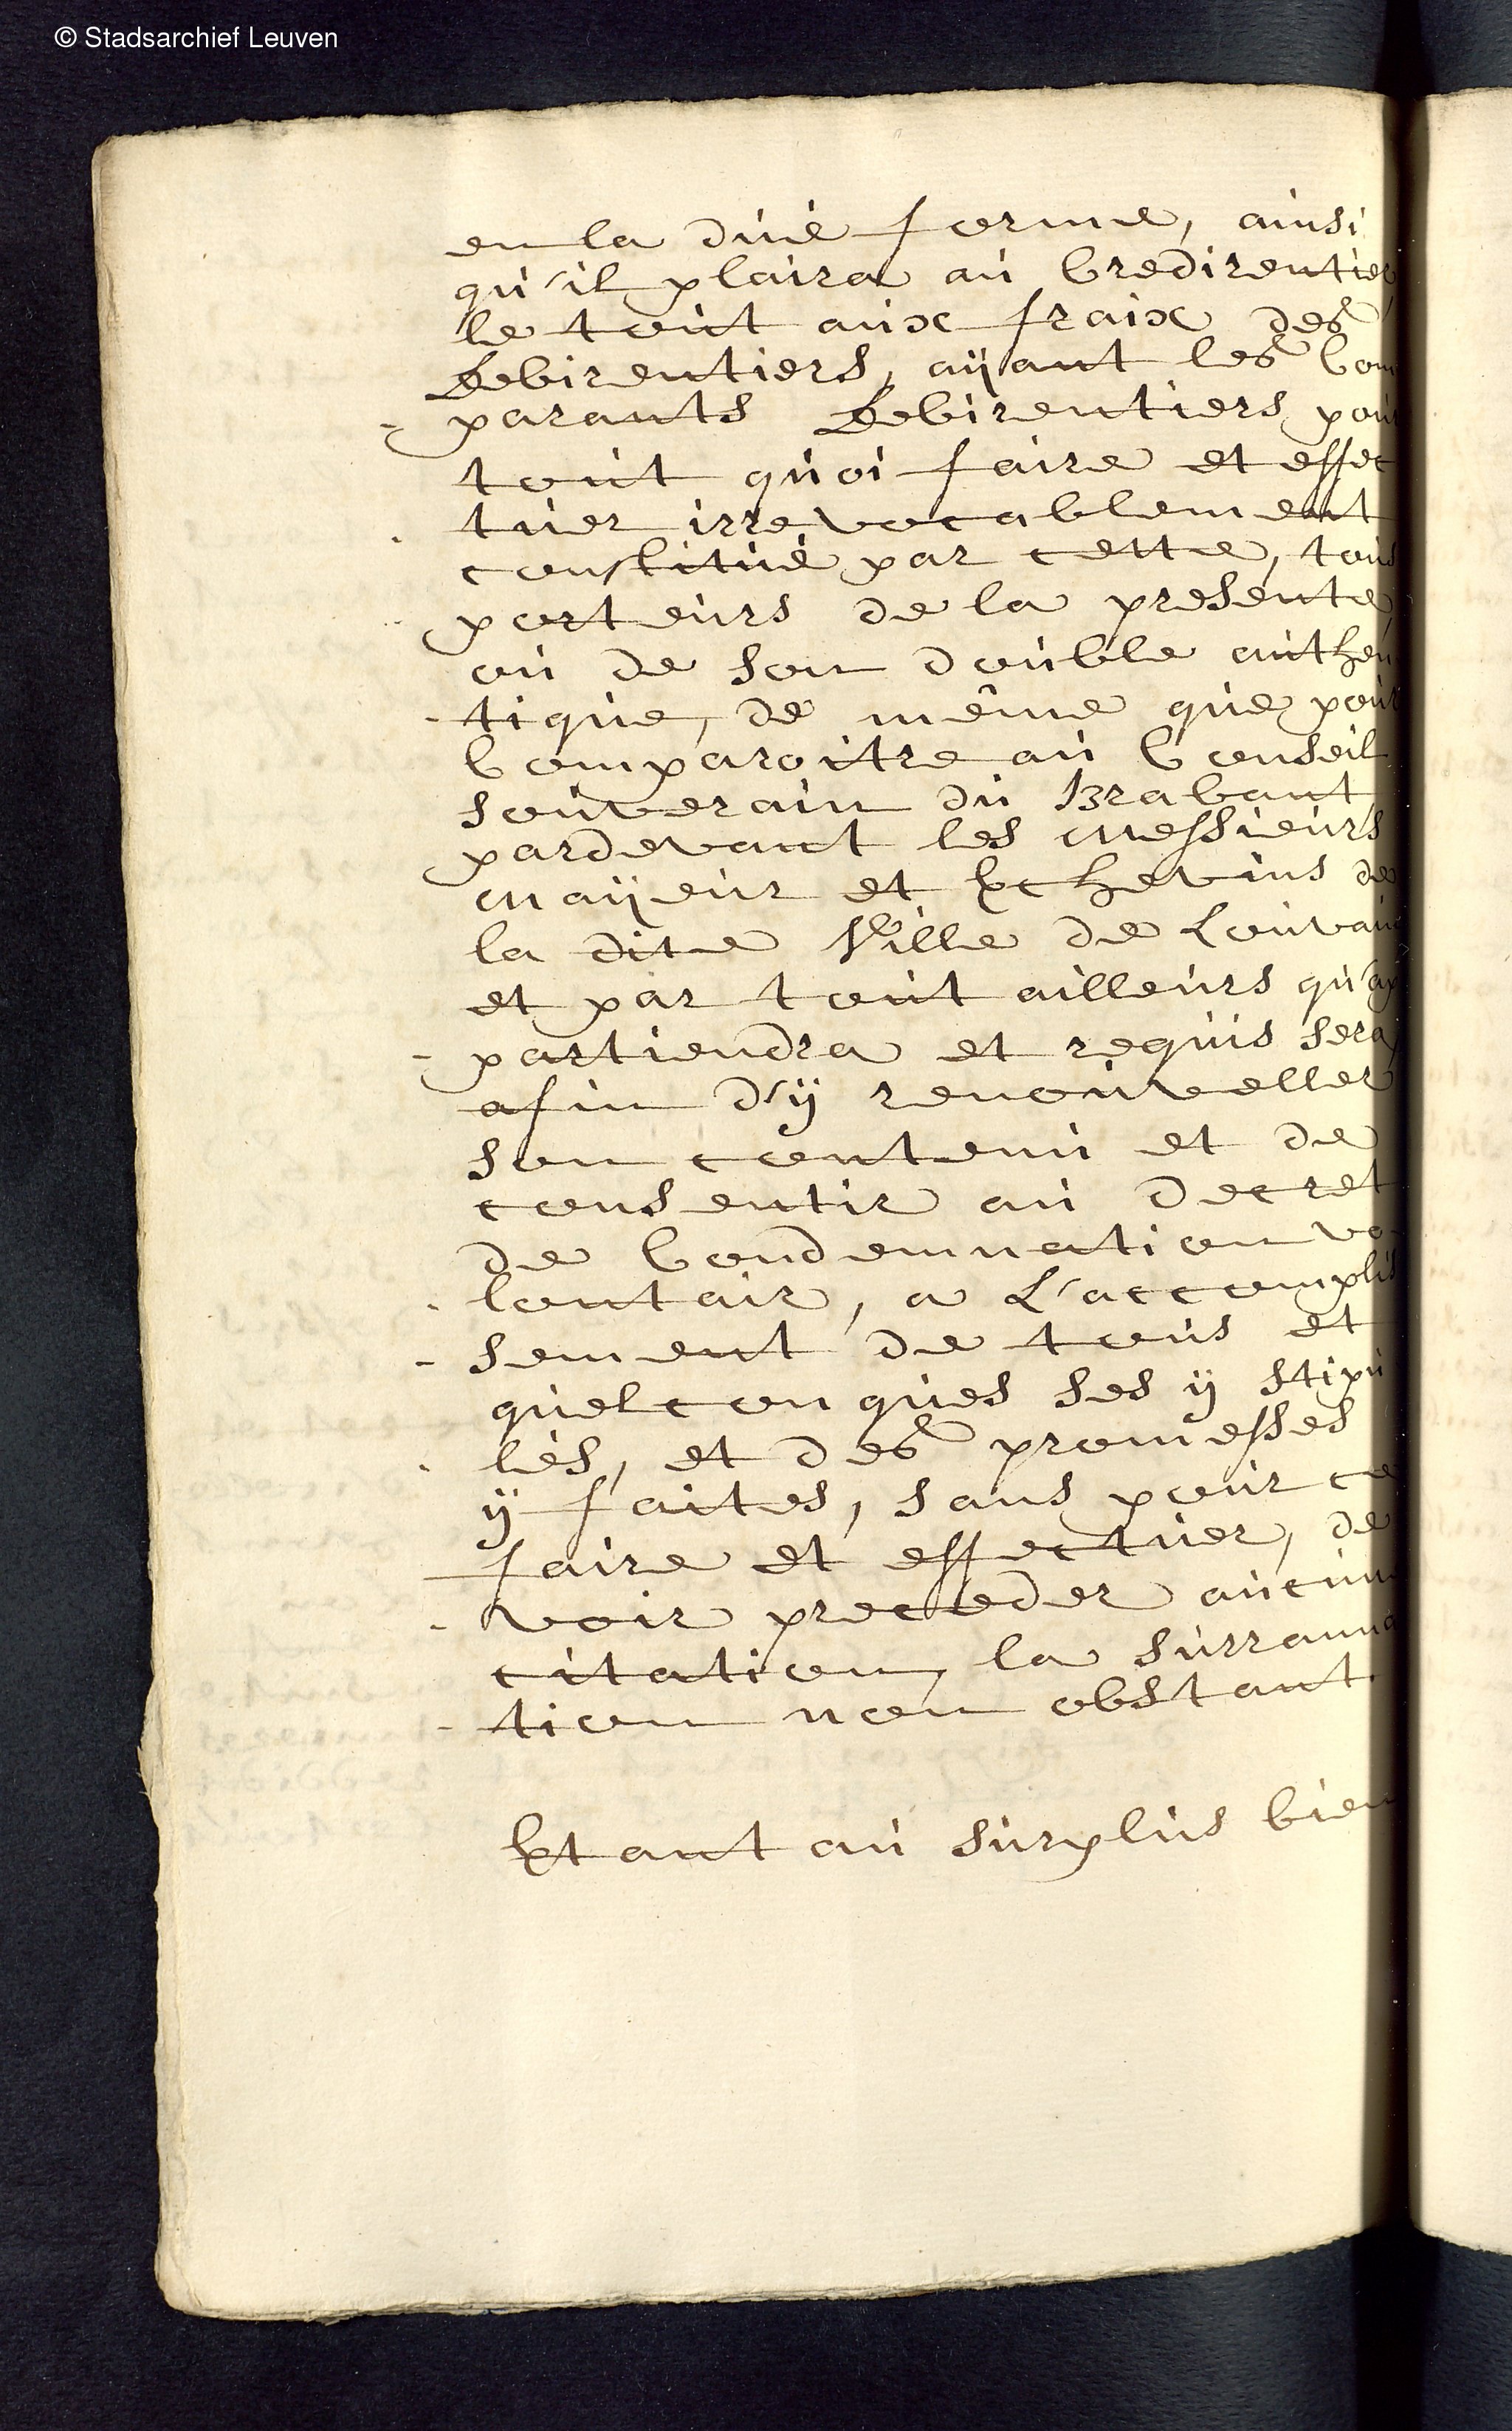 © Stadsarchief Leuven
en la duë forme, ainsi
qu'il plaira au Credirentier
le tout aux fraix des
Debirentiers, aÿant les Com
parants Debirentiers pour
tout quoi faire et effec
tuer irrevocablement
constitué par cette, tous
porteurs de la presente,
ou de son double authen
tique, de même que pour
Comparoitre au Conseil
souverain du Brabant
pardevant les Messieurs
Maÿeur et Echevins de
la dite Ville de Louvain
et par tout ailleurs qu'ap
partiendra et requis sera
afin d'ÿ renouveller
son contenu et de
consentir au decret
de Condemnation vo
lontair, a L'accomplis
sement de tous et
quelconques ses ÿ stipu
lés, et des promesses
ÿ faites, sans pour ce
faire et effectuer, de
voir preceder aucune
citation, la surranna
tion non obstant.
Etant au surplus bien